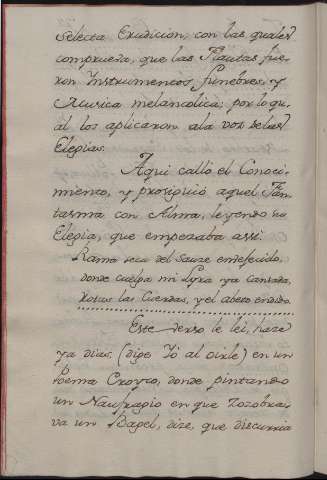 Selecta Erudicion, con las quales
compruevo, que las Flautas fue-
ron Instrumentos funebres, y
Musica melancolica; por lo qu-
al los aplicaron ala voz delas
Elegias.
Aqui callò el Conoci-
miento, y prosiguiò aquel Fan-
tasma con Alma, leyendo su
Elegia, que empezaba assi.
Rama seca del Sauze
donde cuelga mi Lyra ya cansada,
Rotas las Cuerdas, y el abeto endido.
Este verso le lei, haze
ya dias, (dige Yò al oirle) en un
Poema Croyco, donde pintando
un Naufragio en que Zozobra-
va un Bagel, dize, que discurria